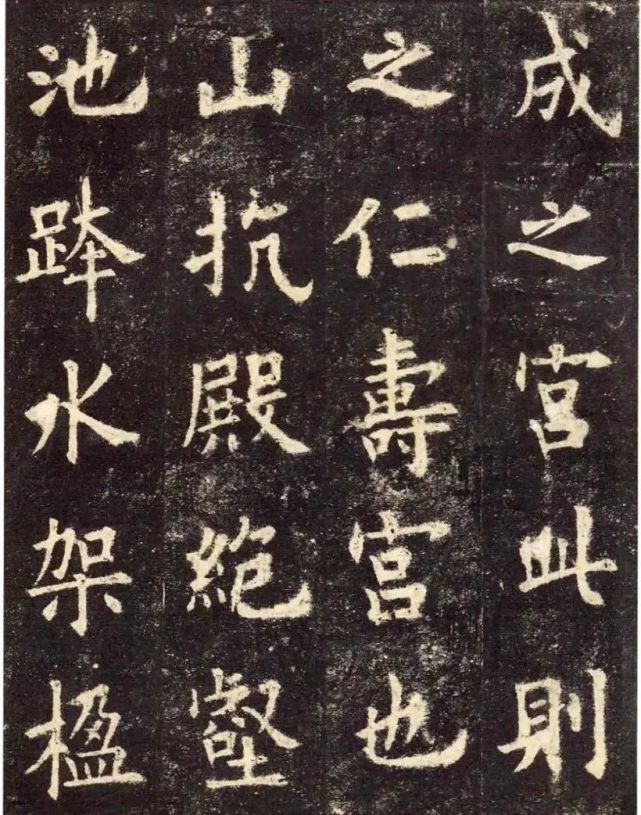 成之宮此則
之仁壽宮也
山抗殿絶壑
池跨水架楹